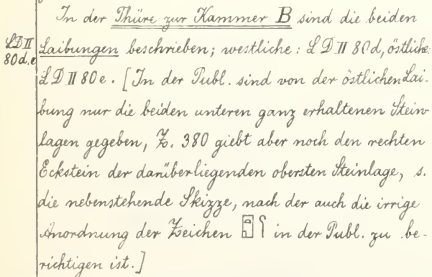 In der Thüre zur Kammer B sind die beiden
LD II
80d.e
Laibungen beschrieben; westliche: LD II 80d, östliche:
LD II 80e. [In der Publ. sind von der östlichen Lai-
bung nur die beiden unteren ganz erhaltenen Stein-
lagen gegeben, Z. 380 giebt aber noch den rechten
Eckstein der darüberliegenden obersten Steinlage, s.
die nebenstehende Skizze, nach der auch die irrige
Anordnung der Zeichen in der Publ. zu be-
richtigen ist.]